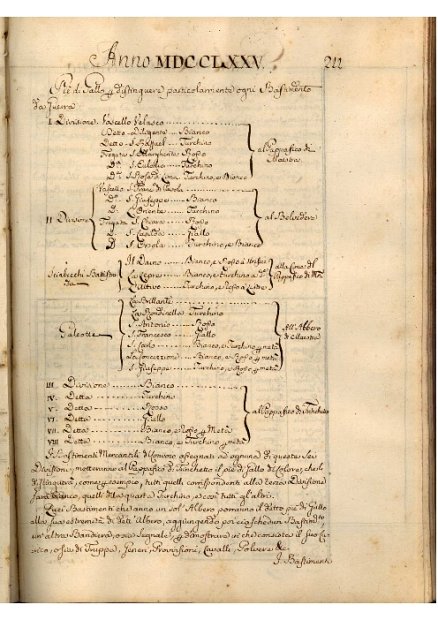 Anno MDCCLXXV. 212
Piè di Gallo p distinguere particolarmente ogni Bastimento
da Guerra
I. Divisione. Vascello Velasco
Detto Diligente Bianco
Detto S. Turchino
Fregata S. Margherita Rosso
Dª. S. Eulalia Turchino
Dª. S. Rosalia Turchino, e Bianco
al Pappafico di
Maestra
II Divisione
Vascello S. Franc. di Paola
D. S. Giuseppe Bianco
D. Oriente Turchino
Fregata S. Chiara Rosso
D. S. Giallo
D. S. Orsola Turchino, e Bianco
al Belvedere
Sciabecchi
Il Daino Bianco, e Rosso a
Bianco, e Turchino a
Turchino, e Rosso a
alla Cima del
Pappafico di
Galeotte
La Brillante
La Rondinella Turchino
S. Antonio Rosso
S. Francesco Giallo
S. Carlo Bianco, e Turchino p metà
La Concezione Bianco, e Rosso p metà
S. Giuseppe Turchino, e Rosso p metà
All' Albero
di Maestra
III. Divisione Bianco
IV. Detta Turchino
V. Detta Rosso
VI. Detta Giallo
VII. Detta Bianco, e Rosso p Metà
VIII. Detta Bianco, e Turchino p metà
al Pappafico di Trinchetto
I Bastimenti Mercantili di Convoio assegnati ad ognuna di queste Sei
Divisioni, metteranno al Pappafico di Trinchetto il piè di Gallo di Colore, che li
distingue, come p esempio, tutti quelli corrispondenti alla terza Divisione
sarà Bianco, quelli della quarta Turchino, e così tutti gl'altri.
Quei Bastimenti che anno un sol' Albero porranno il detto piè di Gallo
alla sua estremità di dett' Albero, aggiungendo poi ciascheun Bastim.to
un' altra Bandiera, o sia Segnale, p dimostrare in che consiste il suo Ca-
rico, o sia di Truppa, Generi, Provisioni, Cavalli, Polvere &c.
I. Bastiment